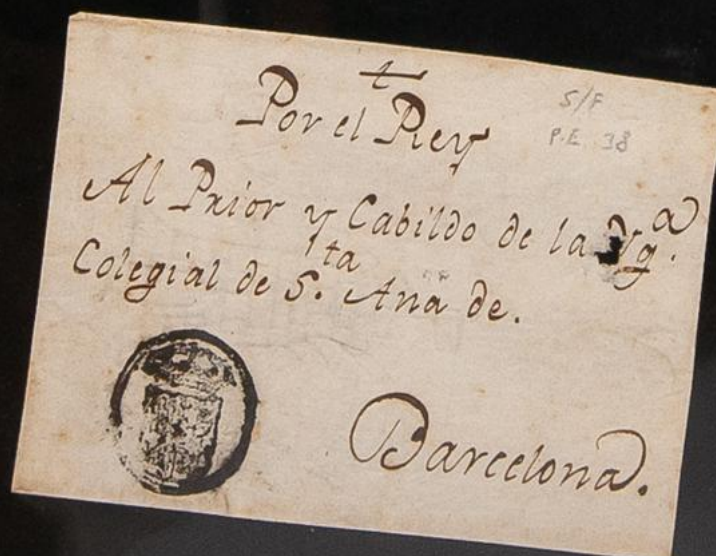 †
Por el Rey
S/F
P.E 38
Al Prior y Cabildo de la Yg.ª
Colegial de S.ta Ana de.
Barcelona.